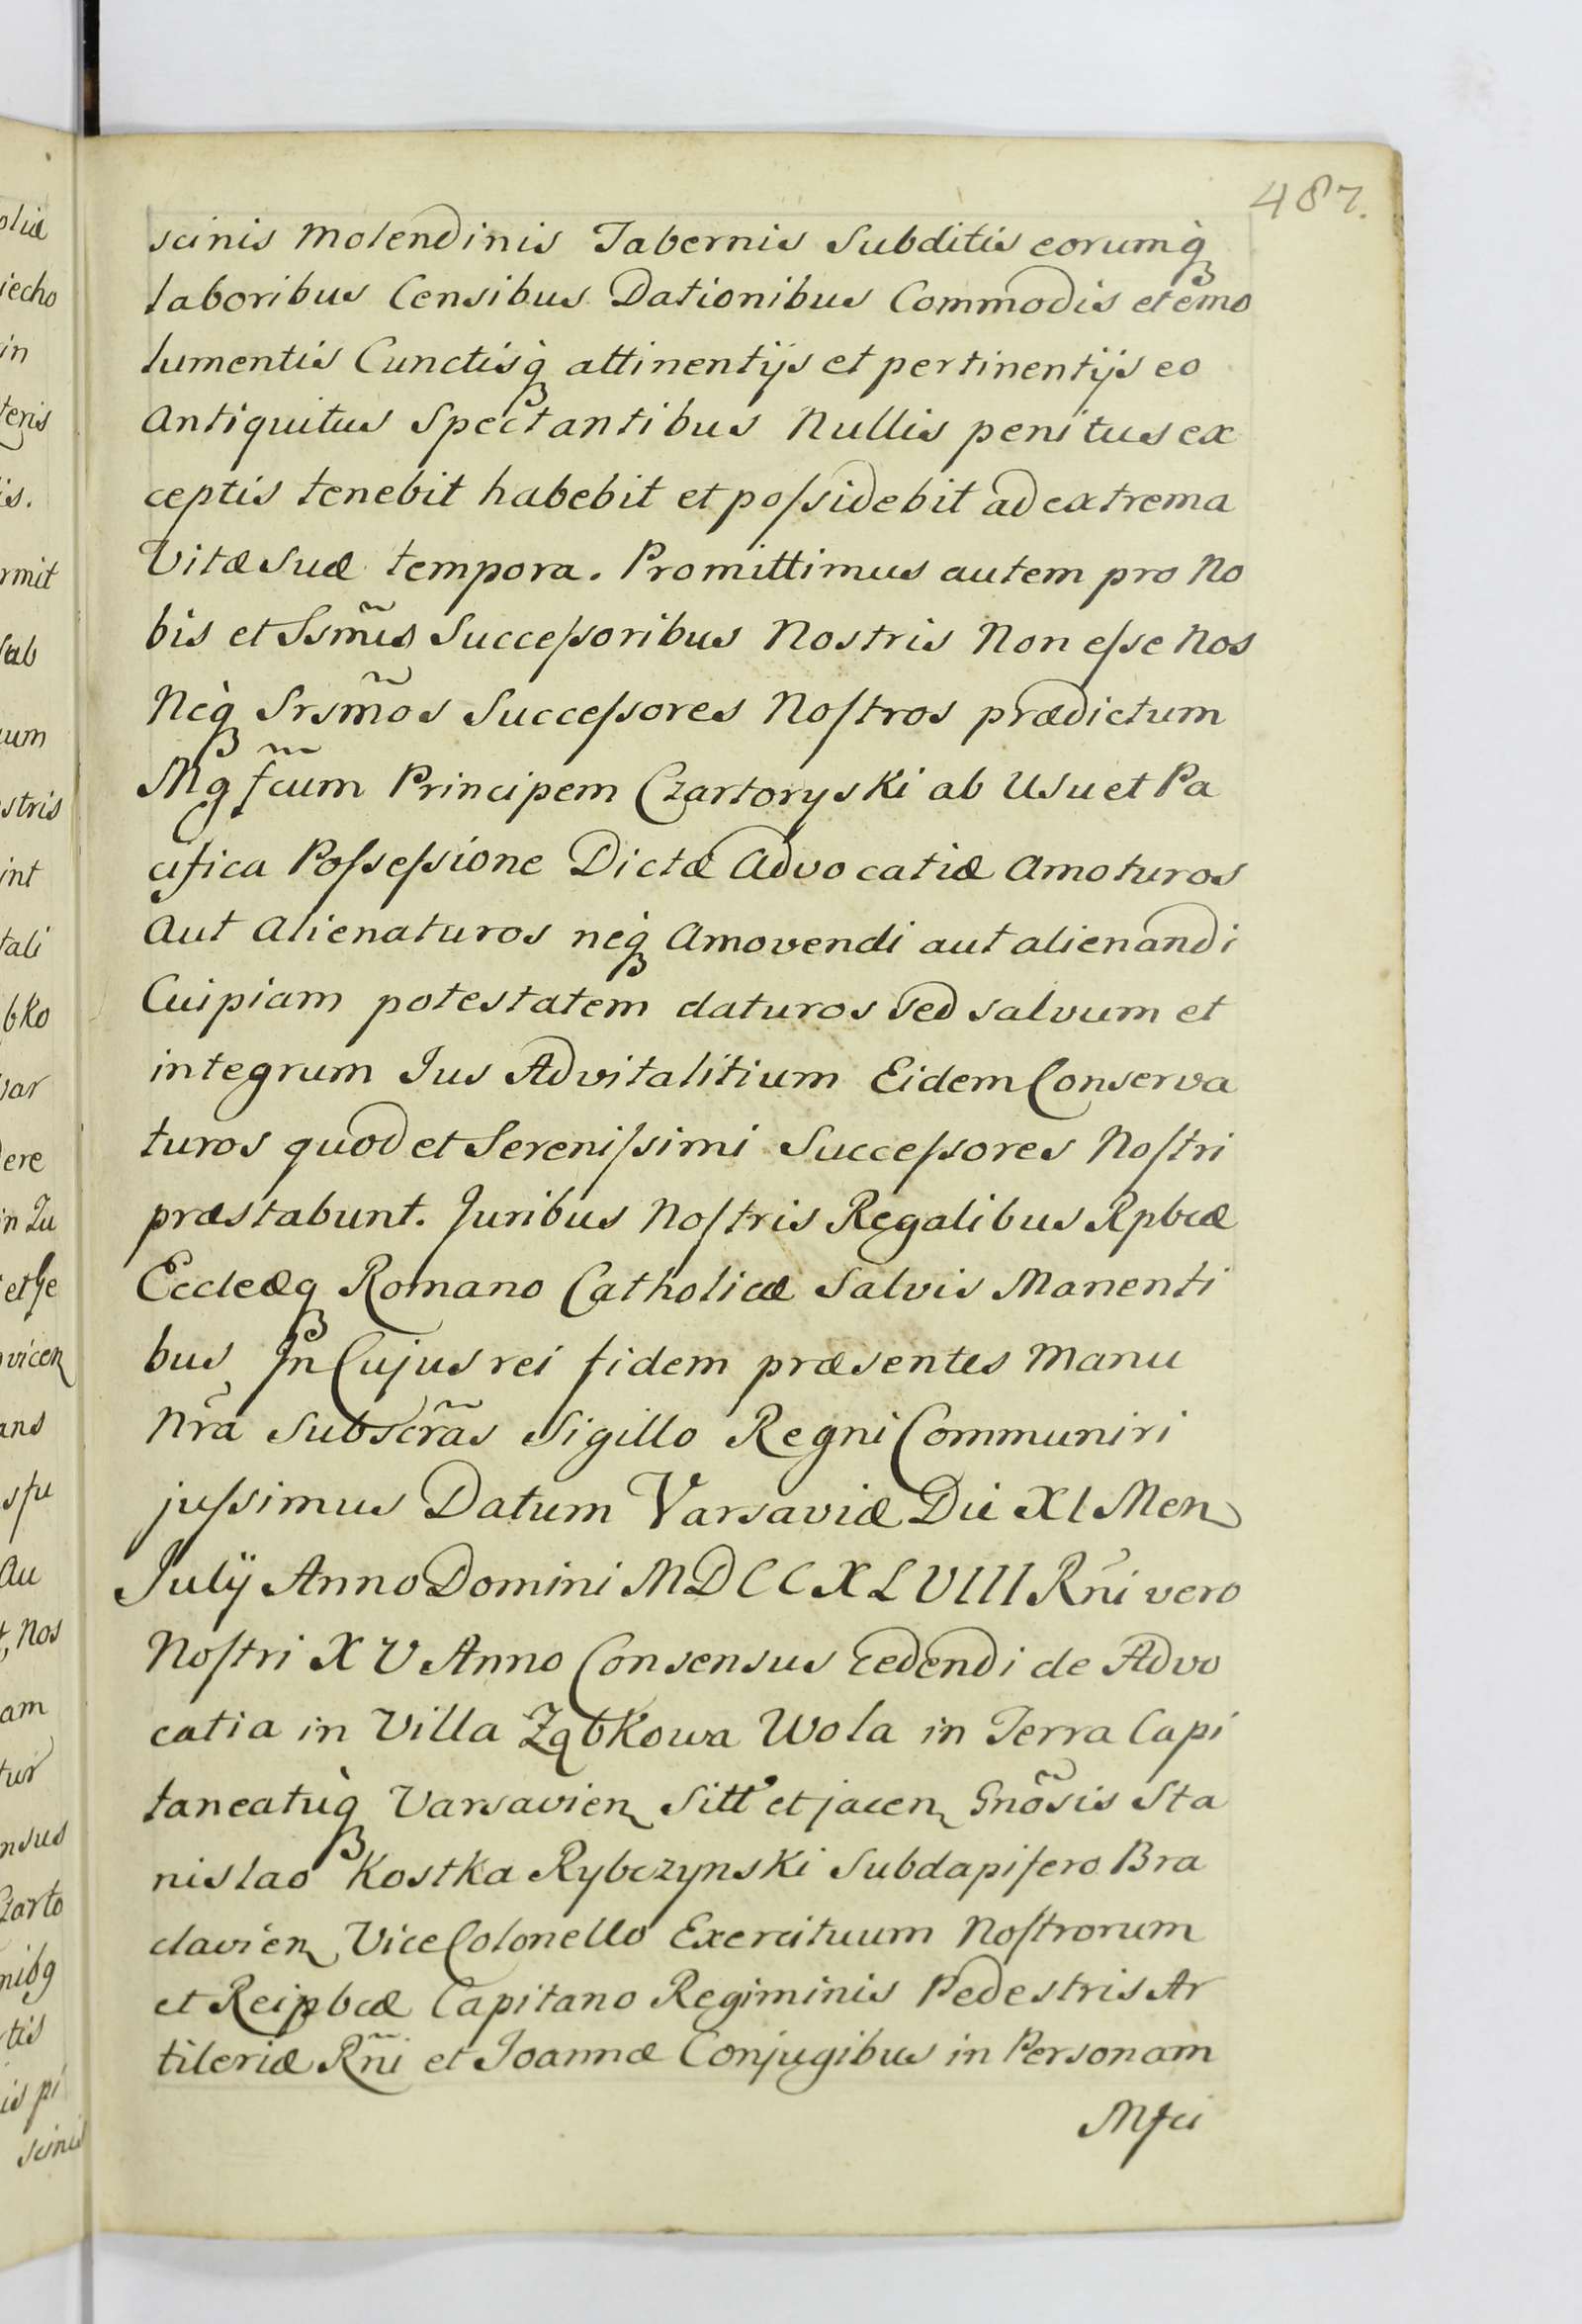 487.
scinis Molendinis Tabernis Subditis eorumq̀
laboribus Censibus Dationibus Commodis et emo
lumentis Cunctisq̀ attinentijs et pertinentijs eo
Antiquitus Spectantibus Nullis penitus ex
ceptis tenebit habebit et poſsidebit ad extrema
Vitæ Suæ tempora. Promittimus autem pro No
bis et Ssm̃is Succeſsoribus Nostris Non eſse Nos
Neq̀ Srsm̃os Succeſsores Noſtros prædictum
Mgf̃cum Principem Czartoryski ab Usu et Pa
cifica Poſseſsione Dictæ Advocatiæ Amoturos
Aut Alienaturos neq̀ Amovendi aut alienandi
Cuipiam potestatem daturos sed salvum et
integrum Jus Advitalitium Eidem Conserva
turos quod et Sereniſsimi Succeſsores Noſtri
præstabunt. Juribus Noſtris Regalibus Rpbcæ
Eccleæq Romano Catholicæ Salvis Manenti
bus, In Cujus rei fidem præsentes Manu
Nr̃a Subscr̃as Sigillo Regni Communiri
juſsimus Datum Varsaviæ Die XI Men
Julij Anno Domini MDCCXLVIII Rñi vero
Noſtri XV Anno Consensus cedendi de Advo
catia in Villa Ząbkowa Wola in Terra Capi
taneatuq̀ Varsavien Sitt et jacen Gnõsis Sta
nislao Kostka Rybczynski Subdapifero Bra
clavien Vice Colonello Exercituum Noſtrorum
et Reipbcæ Capitano Regiminis Pedestris Ar
tileriæ Rñi et Joannæ Conjugibus in Personam
Mfci
oliæ
iecho
in
teris
is.
rmit
sab
um
stris
int
tali
bko
var
dere
in Zu
et Ge
vicen
ans
sfu
Au
t, Nos
am
tur
nsus
Czarto
nibq
tis
is pi
scinis